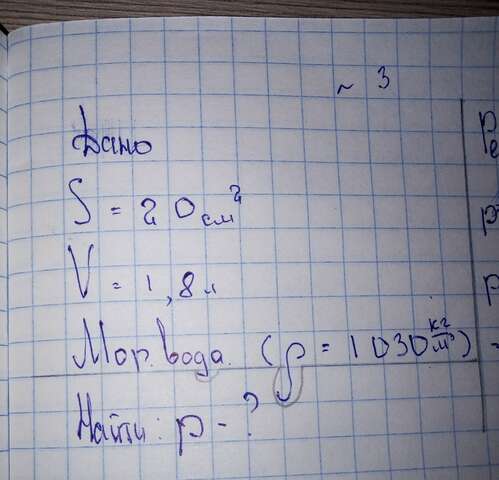 ~ 3
Дано
S = 20 см²
V = 1,8 л
Мор. вода. (ρ = 1030 кг/м³)
Найти: p - ?